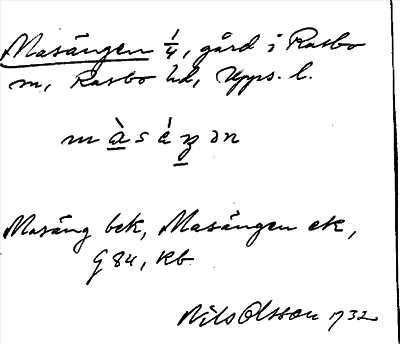 Masängen 1/4, gård i Rasbo
m, Rasbo hd, Upps. l.
Masäng bek, Masängen ek,
G 84, Kb
Nils Olsson 1732